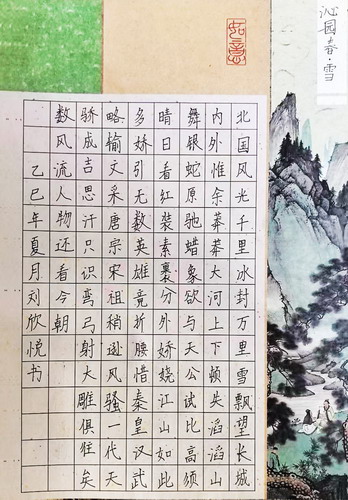 沁园春·雪
如意
北国风光千里冰封万里雪飘望长城
内外惟余莽莽大河上下顿失滔滔山
舞银蛇原驰蜡象欲与天公试比高须
晴日看红装素裹分外娇娆江山如此
多娇引无数英雄竞折腰惜秦皇汉武
略输文采唐宗宋祖稍逊风骚一代天
骄成吉思汗只识弯弓射大雕俱往矣
数风流人物还看今朝
乙巳年夏月刘欣悦书